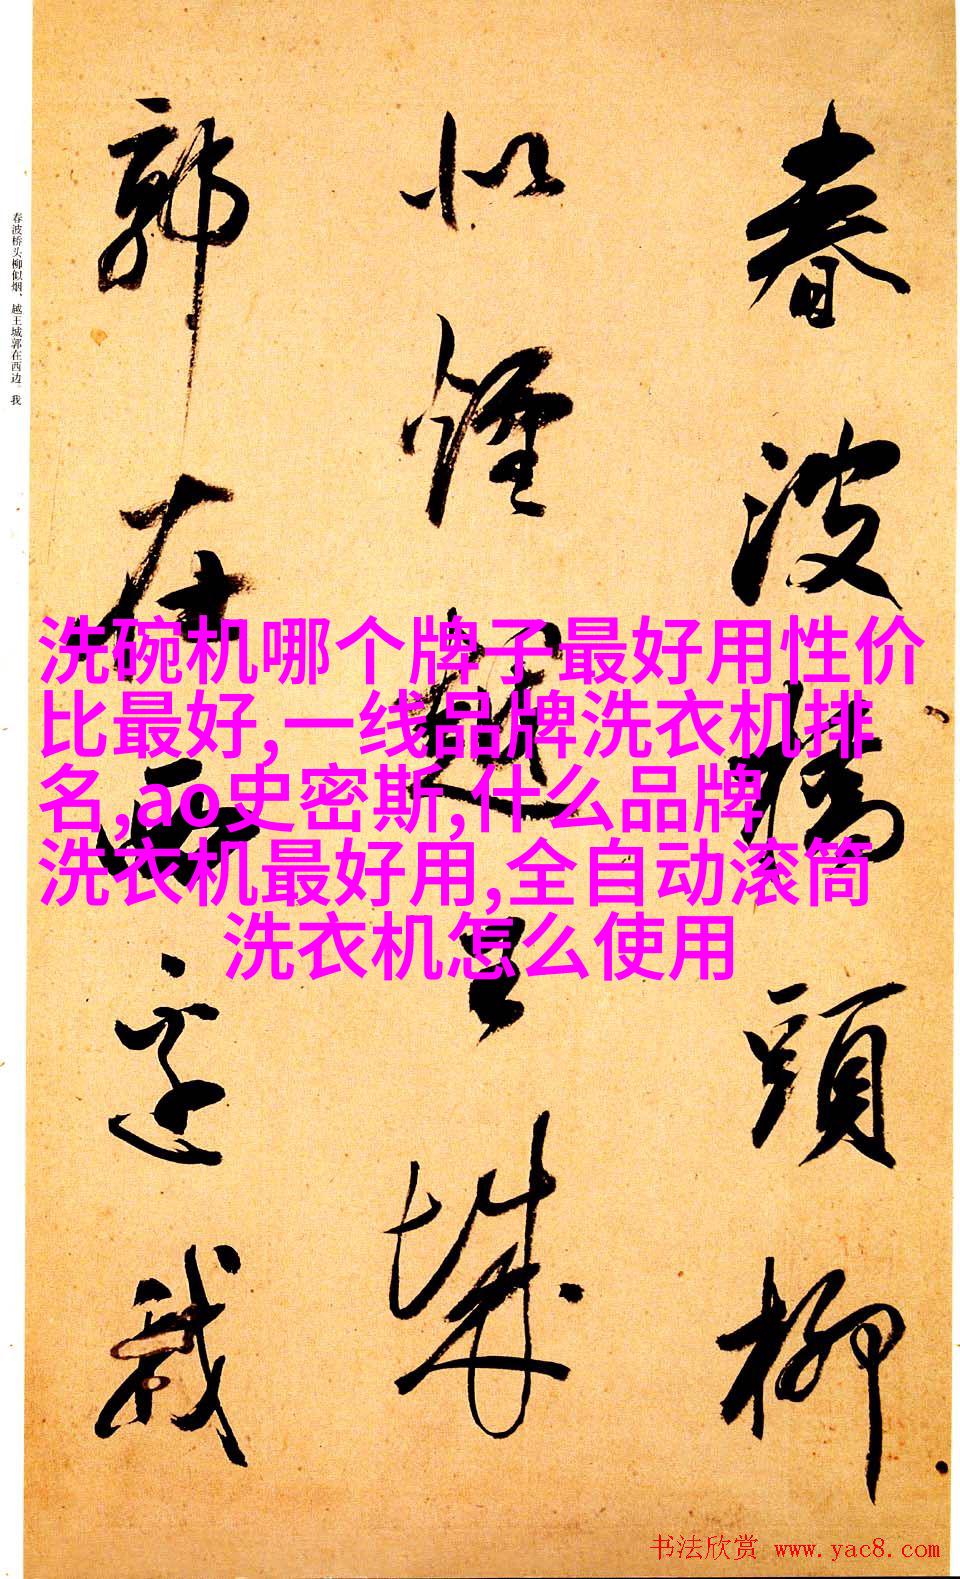 春波橋頭柳
似煙越王城
郭在西邊我
春波桥头柳似烟、越王城郭在西边。我
洗碗机哪个牌子最好用性价
比最好,一线品牌洗衣机排
名,ao史密斯,什么品牌
洗衣机最好用,全自动滚筒
洗衣机怎么使用
书法欣赏 www.yac8.com